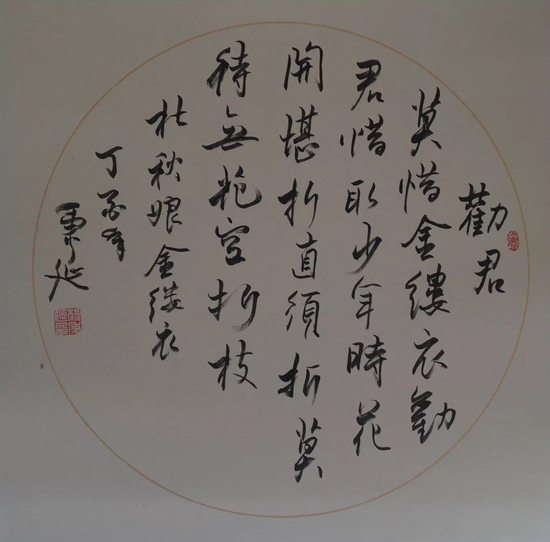 勸君
莫惜金縷衣勸
君惜取少年時花
開堪折直須折莫
待無花空折枝
杜秋娘金缕衣
丁酉年